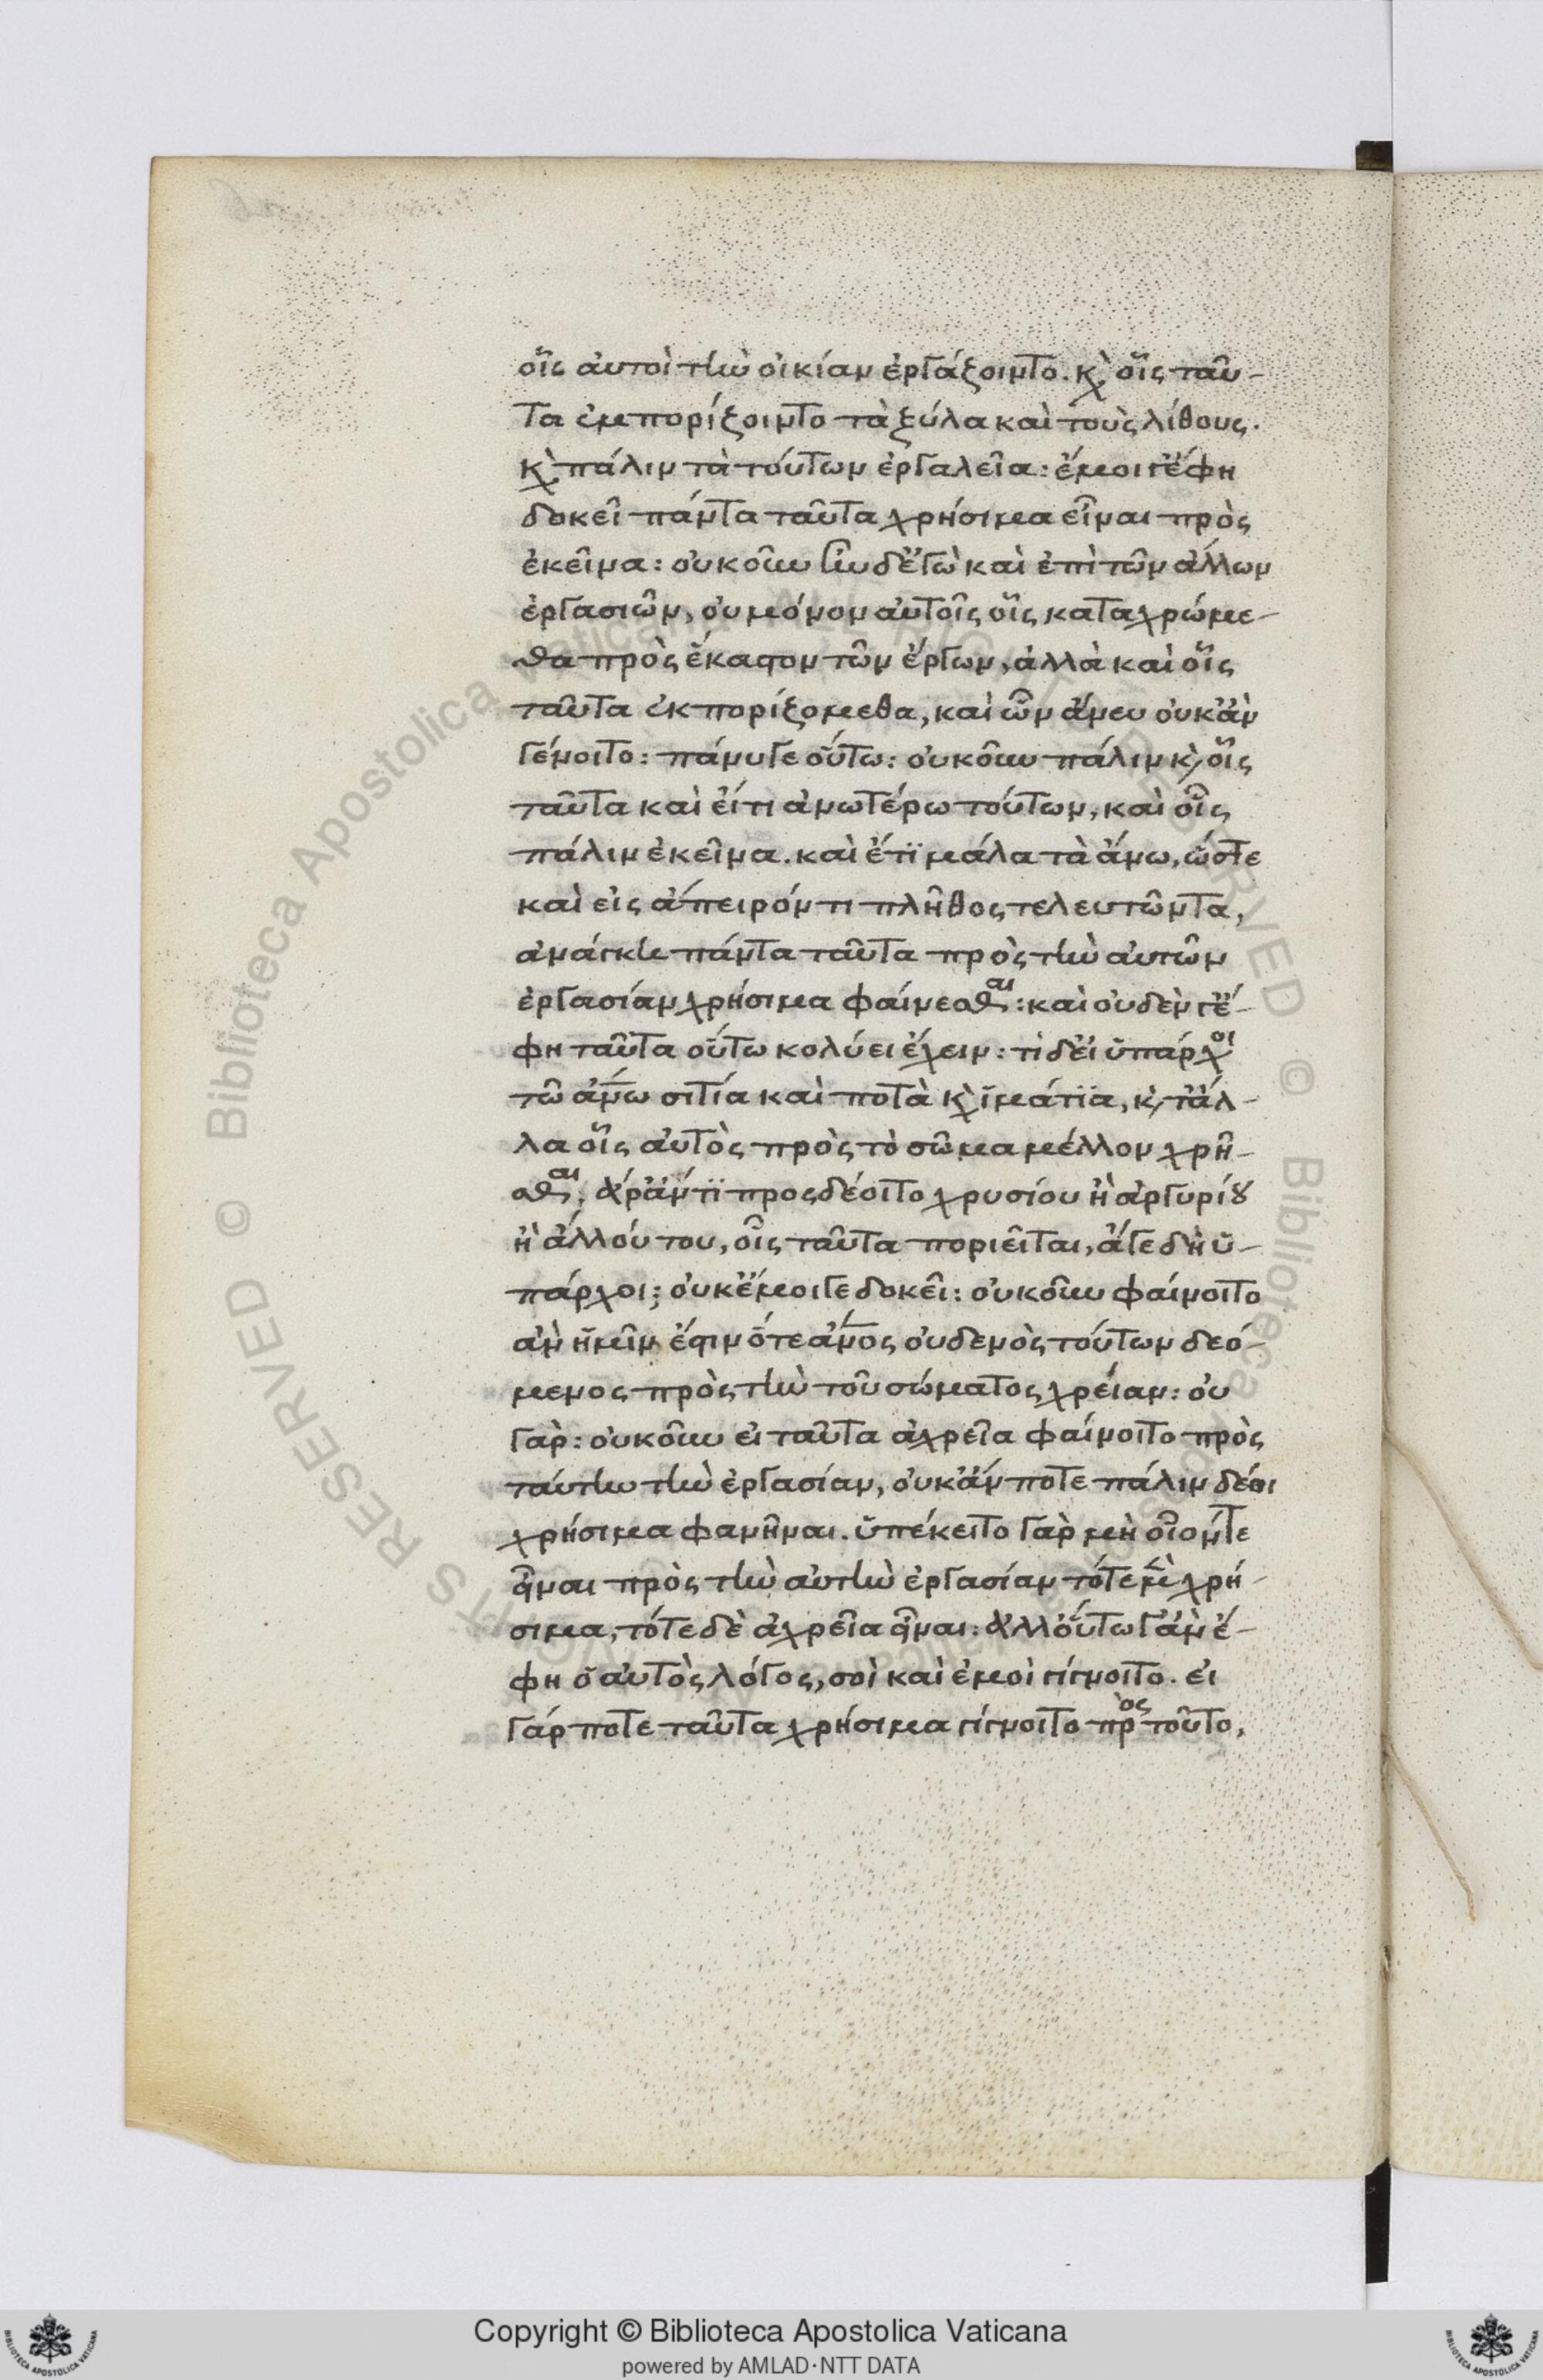 οἷς αὐτοὶ τὴν οἰκίαν ἐργάζοιντο. κὶ οἷς ταῦ-
τα ἐμπορίζοιντο τὰ ξύλα καὶ τοὺς λίθους.
κὶ πάλιν τὰ τούτων ἐργαλεῖα: ἔμοιγ' ἔφη
δοκεῖ πάντα ταῦτα χρήσιμα εἶναι πρὸς
ἐκεῖνα: οὐκοῦν ἦν δ' ἐγὼ καὶ ἐπὶ τῶν ἄλλων
ἐργασιῶν, οὐ μόνον αὐτοῖς οἷς καταχρώμε-
θα πρὸς ἕκαστον τῶν ἔργων, ἀλλὰ καὶ οἷς
ταῦτα ἐκποριζόμεθα, καὶ ὧν ἄνευ οὐκ ἂν
γένοιτο: πάνυ γε οὕτω: οὐκοῦν πάλιν κὶ οἷς
ταῦτα καὶ εἴ τι ἀνωτέρω τούτων, καὶ οἷς
πάλιν ἐκεῖνα. καὶ ἔτϊ μάλα τὰ ἄνω, ὥστε
καὶ εἰς ἄπειρόν τι πλῆθος τελευτῶντα,
ἀνάγκη πάντα ταῦτα πρὸς τὴν αὐτῶν
ἐργασίαν χρήσιμα φαίνεσθαι: καὶ οὐδὲν γ' ἔ-
φη ταῦτα οὕτω κολύει ἔχειν: τί δ' εἰ ὑπάρχοι
τῶ ἀνω σιτία καὶ ποτὰ κὶ ἱμάτϊα, κὶ τἆλ-
λα οἷς αὐτὸς πρὸς τὸ σῶμα μέλλον χρῆ-
σθαι, ἄρ' ἄν τϊ προςδέοιτο χρυσίου ἢ ἀργυρίου
ἢ ἄλλού του, οἷς ταῦτα ποριεῖται, ἅγε δὴ ὑ-
πάρχοι; οὐκ ἔμοιγε δοκεῖ: οὐκοῦν φαίνοιτο
ἂν ἡμῖν ἔστιν ὅτε ἄνος οὐδενὸς τούτων δεό-
μενος πρὸς τὴν τοῦ σώματος χρείαν: οὐ
γάρ: οὐκοῦν εἰ ταῦτα ἀχρεῖα φαίνοιτο πρὸς
ταύτην τὴν ἐργασίαν, οὐκ ἄν ποτε πάλιν δέοι
χρήσιμα φανῆναι. ὑπέκειτο γὰρ μὴ οἷόν τε
εἶναι πρὸς τὴν αὐτὴν ἐργασίαν τότε μὲ χρή-
σιμα, τότε δὲ ἀχρεῖα εἶναι: ἀλλ' οὕτω γ' ἂν ἔ-
φη ὁ αὐτὸς λόγος, σοὶ καὶ ἐμοὶ γίγνοιτο. εἰ
γάρ ποτε ταῦτα χρήσιμα γίγνοιτο πρὸς τοῦτο,
Copyright © Biblioteca Apostolica Vaticana
powered by AMLAD·NTT DATA